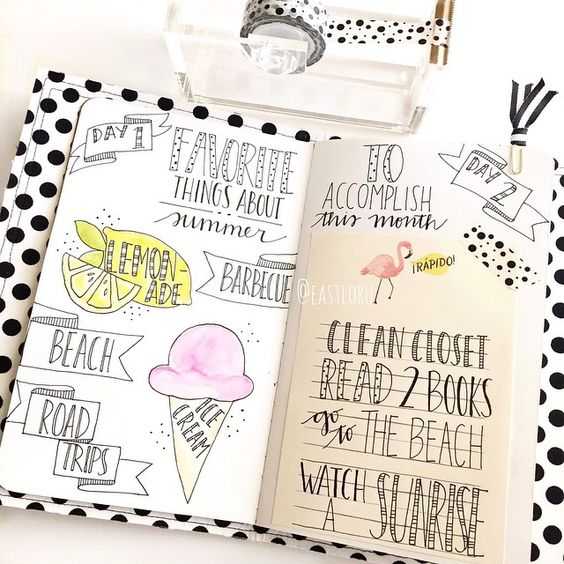 DAY 1
FAVORITE
THINGS ABOUT
summer
LEMON-
ADE
BARBECUE
BEACH
ROAD
TRIPS
ICE
CREAM
TO
ACCOMPLISH
this month
DAY 2
¡RÁPIDO!
CLEAN CLOSET
READ 2 BOOKS
go to THE BEACH
WATCH
A SUNRISE